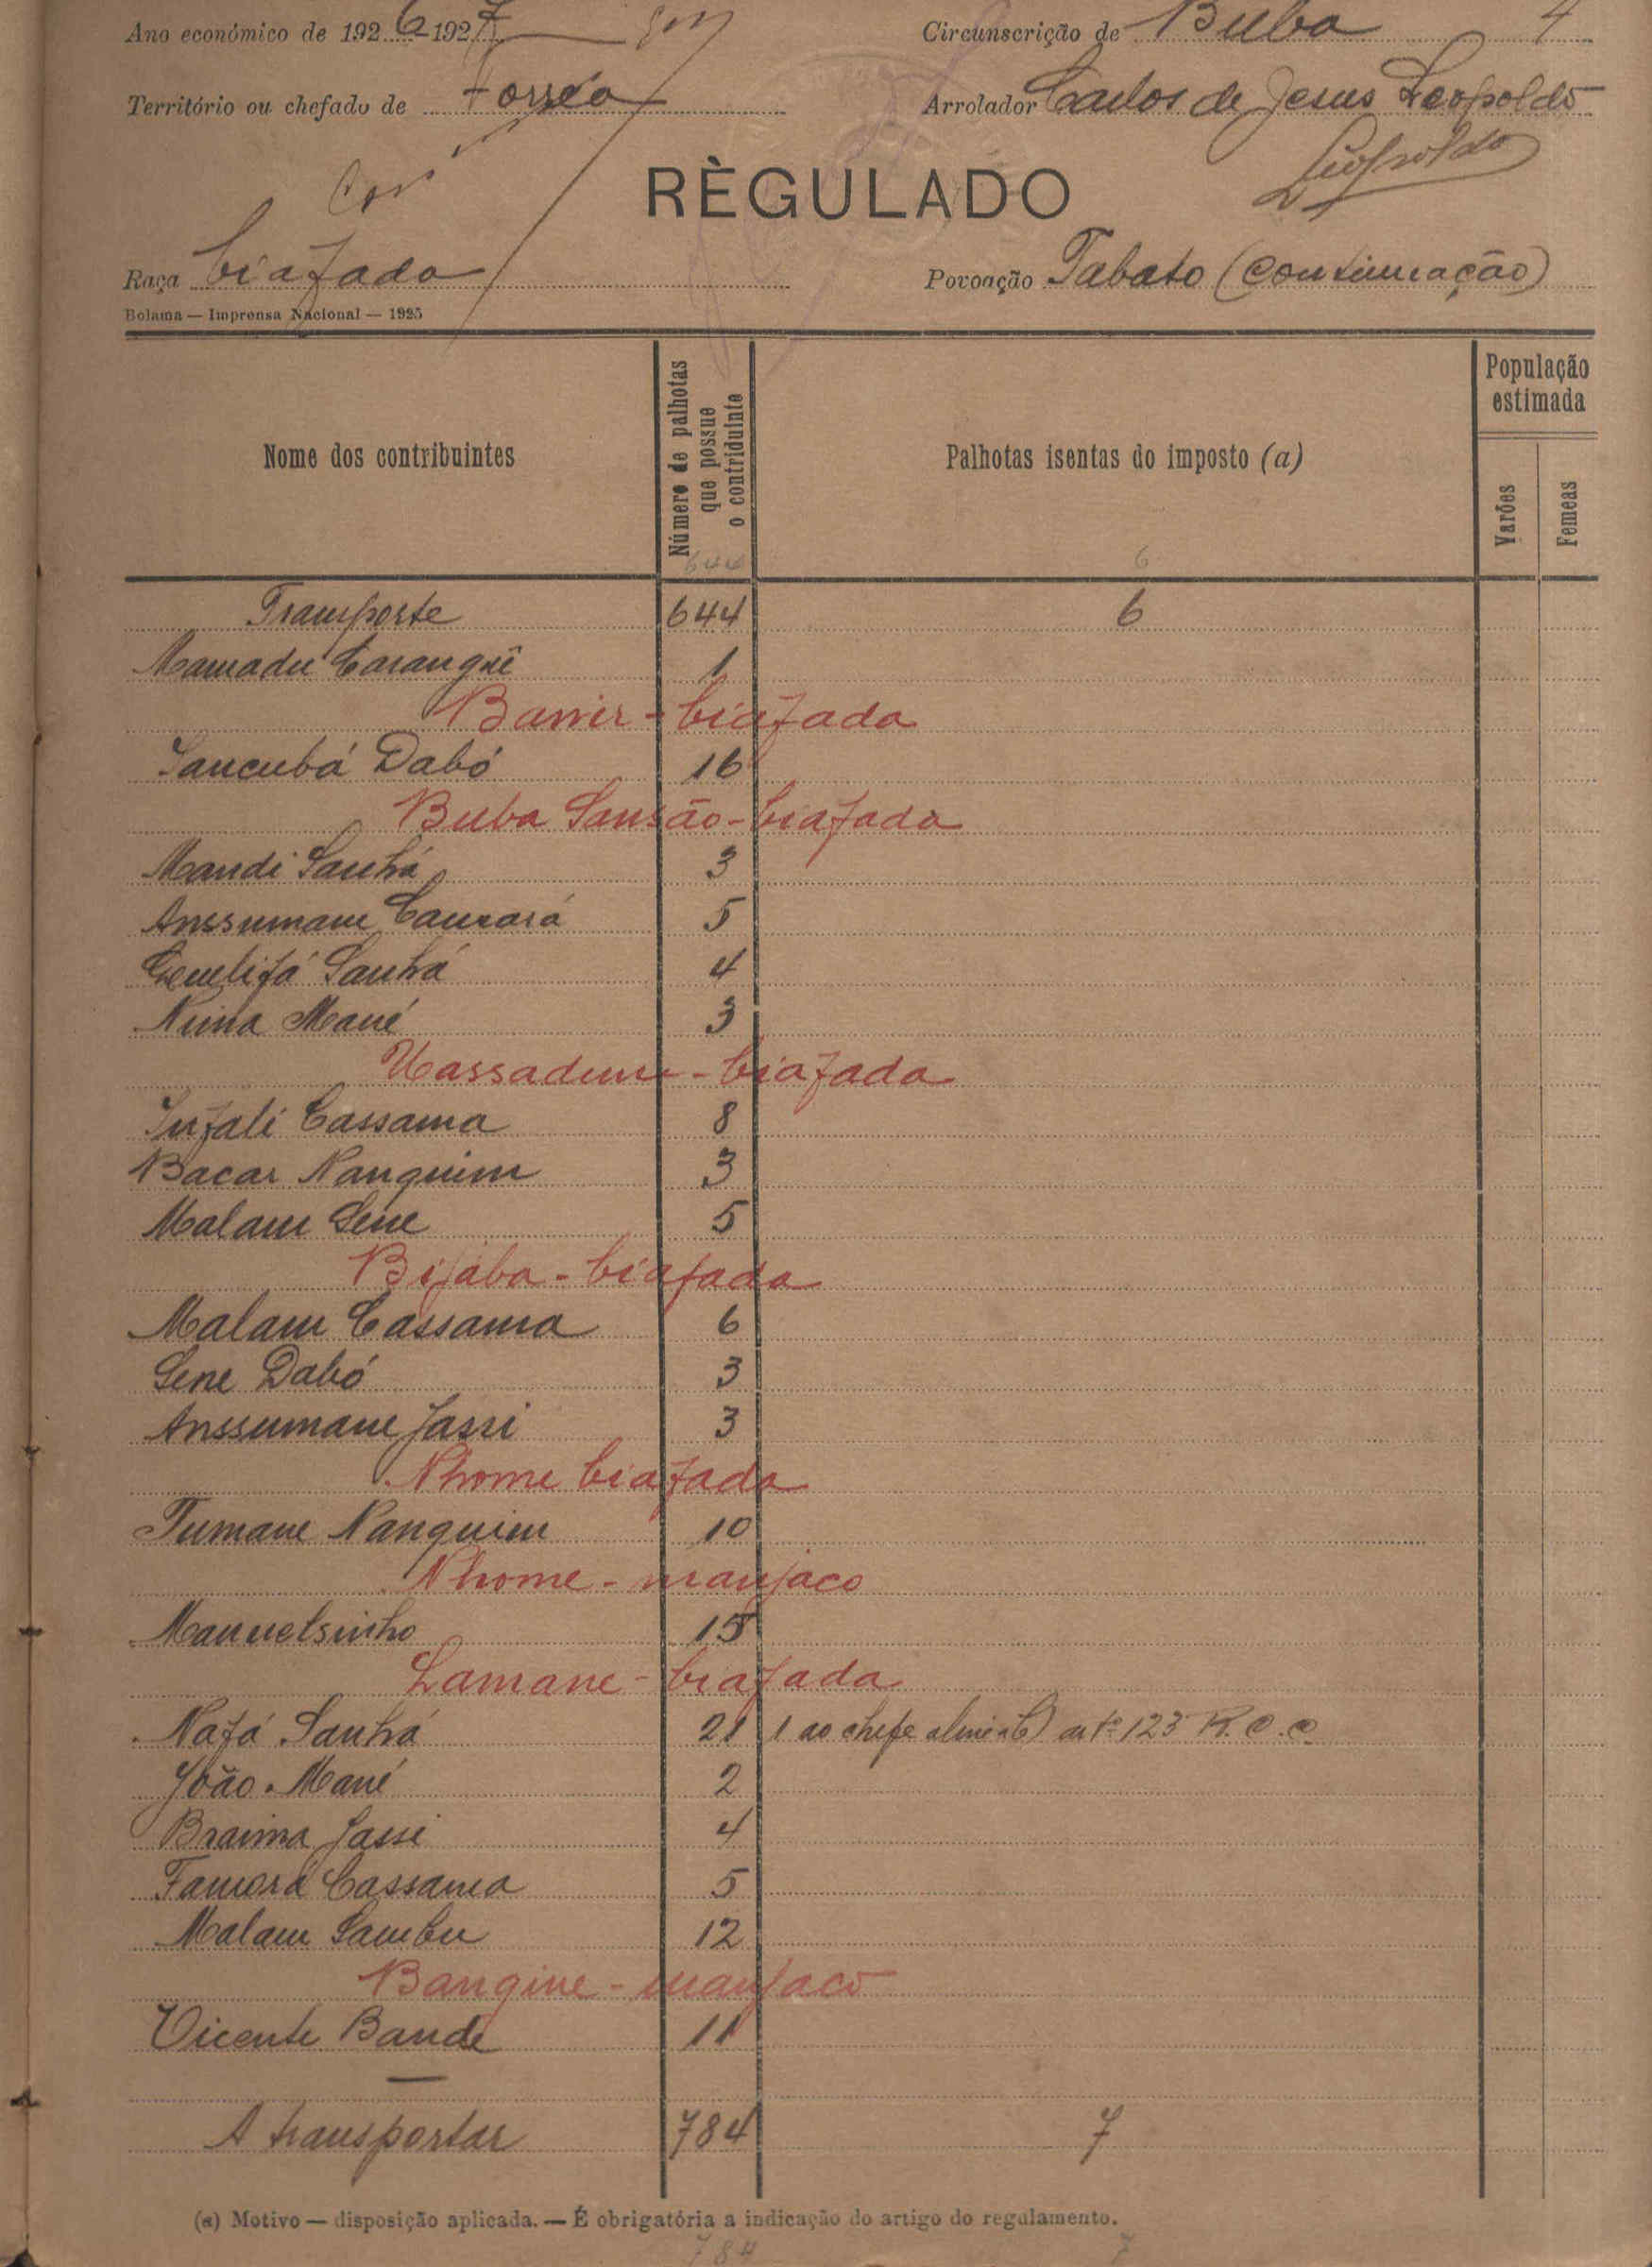 Ano económico de 1926-1927
Circunscrição de Buba 4
Território ou chefado de Forreá
Arrolador Carlos de Jesus Leopoldo
Leopoldo
RÈGULADO
Raça biafada
Povoação Tabato (continuação)
Bolama — Imprensa Nacional — 1925
Nome dos contribuintes
Número de palhotas que possue o contriduinte
Palhotas isentas do imposto (a)
População estimada
Varões
Femeas
644 6
Transporte 644 6
Mamadu Caranguê 1
- biafada
Sancubá Dabó 16
Buba Sansão - biafada
Mandi Sanhá 3
Anssumane Camará 5
Quelifá Sanhá 4
Mané 3
Uassadume - biafada
Infali Cassama 8
Bacar Nanquim 3
Malam Sene 5
Bijaba - biafada
Malam Cassama 6
Sene Dabó 3
Anssumane Jassi 3
Nhome biafada
Tumane Nanquim 10
Nhome - manjaco
Manuelsinho 15
Lamane - biafada
Nafá Sanhá 21 1 ao chefe artº 123 R. C. C.
João Mané 2
Braima Jassi 4
Famorá Cassama 5
Malam Sambu 12
Bangine - manjaco
Vicente Bande 11
A transportar 784 7
(a) Motivo — disposição aplicada. — É obrigatória a indicação do artigo do regulamento.
784 7